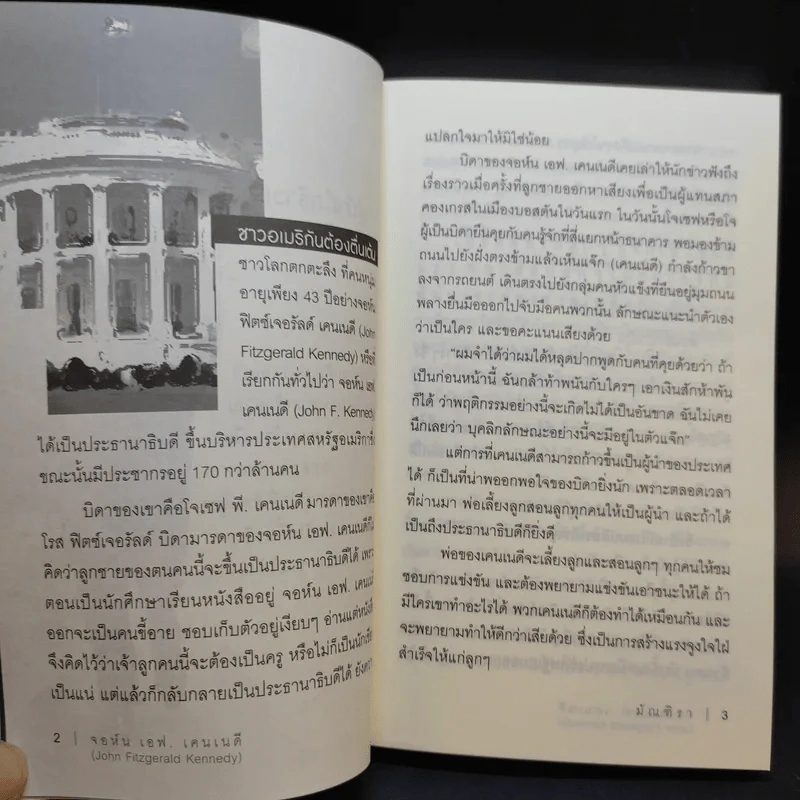 ชาวอเมริกันต้องตื่นเต้น
ชาวโลกตกตะลึง ที่คนหนุ่ม
อายุเพียง 43 ปีอย่างจอห์น
ฟิตซ์เจอรัลด์ เคนเนดี (John
Fitzgerald Kennedy) หรือที่
เรียกกันทั่วไปว่า จอห์น เอฟ.
เคนเนดี (John F. Kennedy
ได้เป็นประธานาธิบดี ขึ้นบริหารประเทศสหรัฐอเมริกาซึ่ง
ขณะนั้นมีประชากรอยู่ 170 กว่าล้านคน
บิดาของเขาคือโจเซฟ พี. เคนเนดี มารดาของเขาคือ
โรส ฟิตซ์เจอรัลด์ บิดามารดาของจอห์น เอฟ. เคนเนดีก็
คิดว่าลูกชายของตนคนนี้จะขึ้นเป็นประธานาธิบดีได้ เพราะ
ตอนเป็นนักศึกษาเรียนหนังสืออยู่ จอห์น เอฟ. เคนเนดี
ออกจะเป็นคนขี้อาย ชอบเก็บตัวอยู่เงียบๆ อ่านแต่หนังสือ
จึงคิดไว้ว่าเจ้าลูกคนนี้จะต้องเป็นครู หรือไม่ก็เป็นนักเขียน
เป็นแน่ แต่แล้วก็กลับกลายเป็นประธานาธิบดีได้ ยังความ
2 | จอห์น เอฟ. เคนเนดี
(John Fitzgerald Kennedy)
แปลกใจมาให้มิใช่น้อย
บิดาของจอห์น เอฟ. เคนเนดีเคยเล่าให้นักข่าวฟังถึง
เรื่องราวเมื่อครั้งที่ลูกชายออกหาเสียงเพื่อเป็นผู้แทนสภา
คองเกรสในเมืองบอสตันในวันแรก ในวันนั้นโจเซฟหรือโจ
ผู้เป็นบิดายืนคุยกับคนรู้จักที่สี่แยกหน้าธนาคาร พอมองข้าม
ถนนไปยังฝั่งตรงข้ามแล้วเห็นแจ๊ก (เคนเนดี) กำลังก้าวขา
ลงจากรถยนต์ เดินตรงไปยังกลุ่มคนหัวแข็งที่ยืนอยู่มุมถนน
พลางยื่นมือออกไปจับมือคนพวกนั้น ลักษณะแนะนำตัวเอง
ว่าเป็นใคร และขอคะแนนเสียงด้วย
"ผมจำได้ว่าผมได้หลุดปากพูดกับคนที่คุยด้วยว่า ถ้า
เป็นก่อนหน้านี้ ฉันกล้าท้าพนันกับใครๆ เอาเงินสักห้าพัน
ก็ได้ ว่าพฤติกรรมอย่างนี้จะเกิดไม่ได้เป็นอันขาด ฉันไม่เคย
นึกเลยว่า บุคลิกลักษณะอย่างนี้จะมีอยู่ในตัวแจ๊ก"
แต่การที่เคนเนดีสามารถก้าวขึ้นเป็นผู้นำของประเทศ
ได้ ก็เป็นที่น่าพออกพอใจของบิดายิ่งนัก เพราะตลอดเวลา
ที่ผ่านมา พ่อเลี้ยงลูกสอนลูกทุกคนให้เป็นผู้นำ และถ้าได้
เป็นถึงประธานาธิบดีก็ยิ่งดี
พ่อของเคนเนดีจะเลี้ยงลูกและสอนลูกๆ ทุกคนให้ชม
ชอบการแข่งขัน และต้องพยายามแข่งขันเอาชนะให้ได้ ถ้า
มีใครเขาทำอะไรได้ พวกเคนเนดีก็ต้องทำได้เหมือนกัน และ
จะพยายามทำให้ดีกว่าเสียด้วย ซึ่งเป็นการสร้างแรงจูงใจใฝ่
สำเร็จให้แก่ลูกๆ
มัณฑิรา | 3